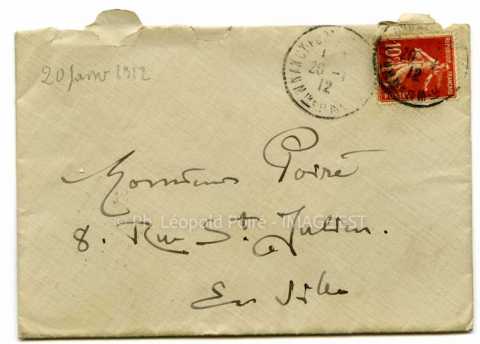 20 Janv 1912
NANCY
20 - 1
12
10
Monsieur Poiré
© Ph. Léopold Poiré - IMAGE'EST
8. Rue St. Julien.
En Ville